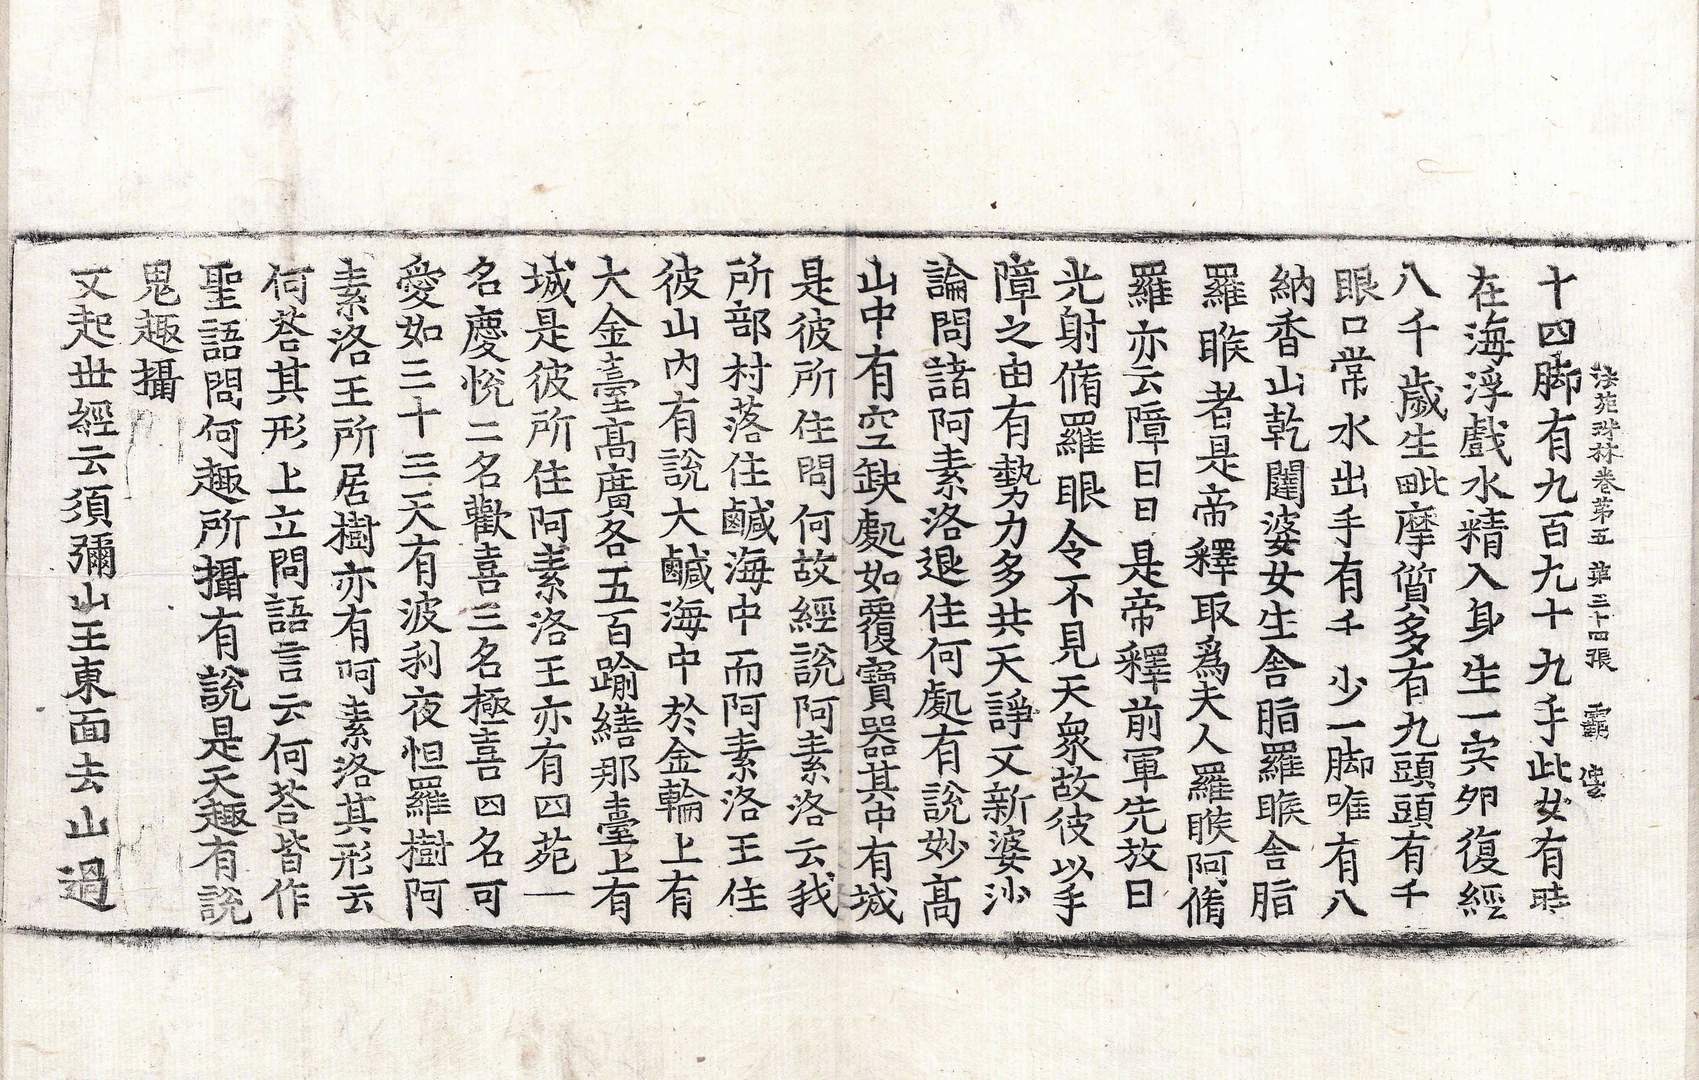 法苑珠林卷第五 第三十四張 覇
十四脚有九百九十九手此女有時
在海浮戲水精入身生一肉卵復經
八千歲生毗摩質多有九頭頭有千
眼口常水出手有千少一脚唯有八
納香山乾闥婆女生舍脂羅睺舍脂
羅睺者是帝釋取爲夫人羅睺阿脩
羅亦云障日日是帝釋前軍先放日
光射脩羅眼令不見天衆故彼以手
障之由有勢力多共天諍又新婆沙
論問諸阿素洛退住何處有說妙高
山中有空缺處如覆寶器其中有城
是彼所住問何故經說阿素洛云我
所部村落住鹹海中而阿素洛王住
彼山內有說大鹹海中於金輪上有
大金臺高廣各五百踰繕那臺上有
城是彼所住阿素洛王亦有四苑一
名慶悅二名歡喜三名極喜四名可
愛如三十三天有波利夜怛羅樹阿
素洛王所居樹亦有阿素洛其形云
何荅其形上立問語言云何荅皆作
聖語問何趣所攝有說是天趣有說
鬼趣攝
又起世經云須彌山王東面去山過